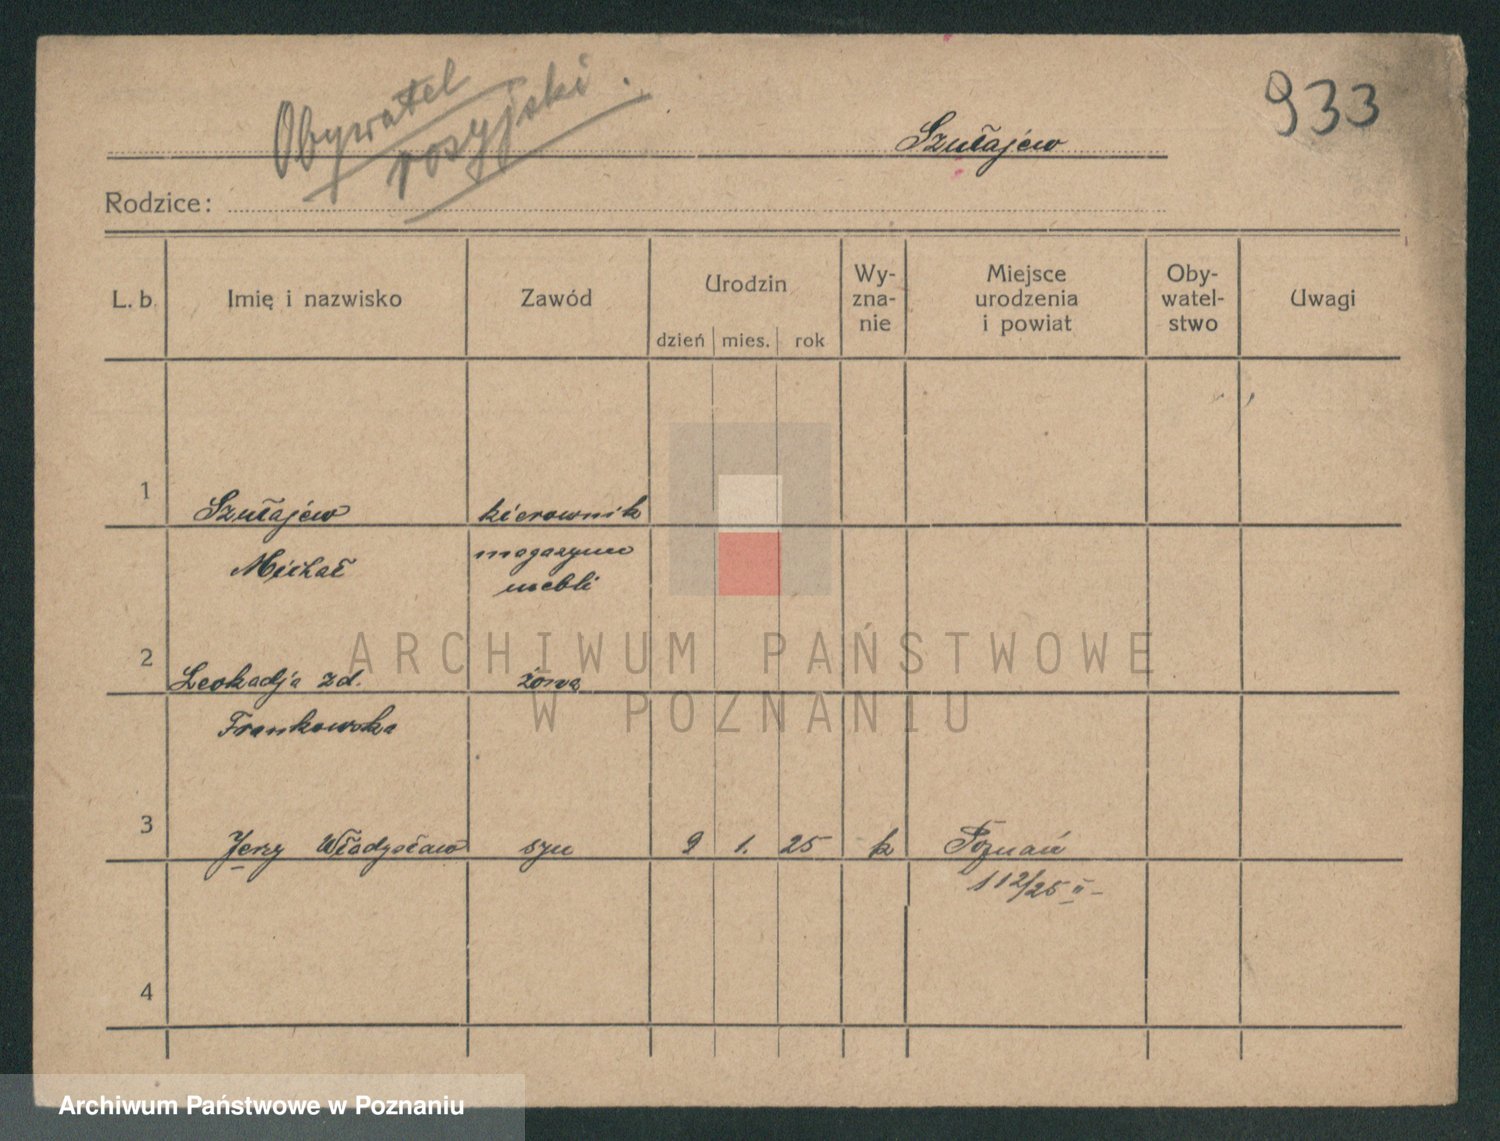 Obywatel
rosyjski.
933
Szułajew
Rodzice:
L. b. Imię i nazwisko Zawód Urodzin dzień mies. rok Wy-zna-nie Miejsce urodzenia i powiat Oby-watel-stwo Uwagi
1 Szułajew kierownik
Michał magazynu
mebli
2 Leokadja zd. żona
Frankowska
3 Jerzy Władysław syn 9 1. 25 k Poznań
112/25 II-
4
ARCHIWUM PAŃSTWOWE
W POZNANIU
Archiwum Państwowe w Poznaniu